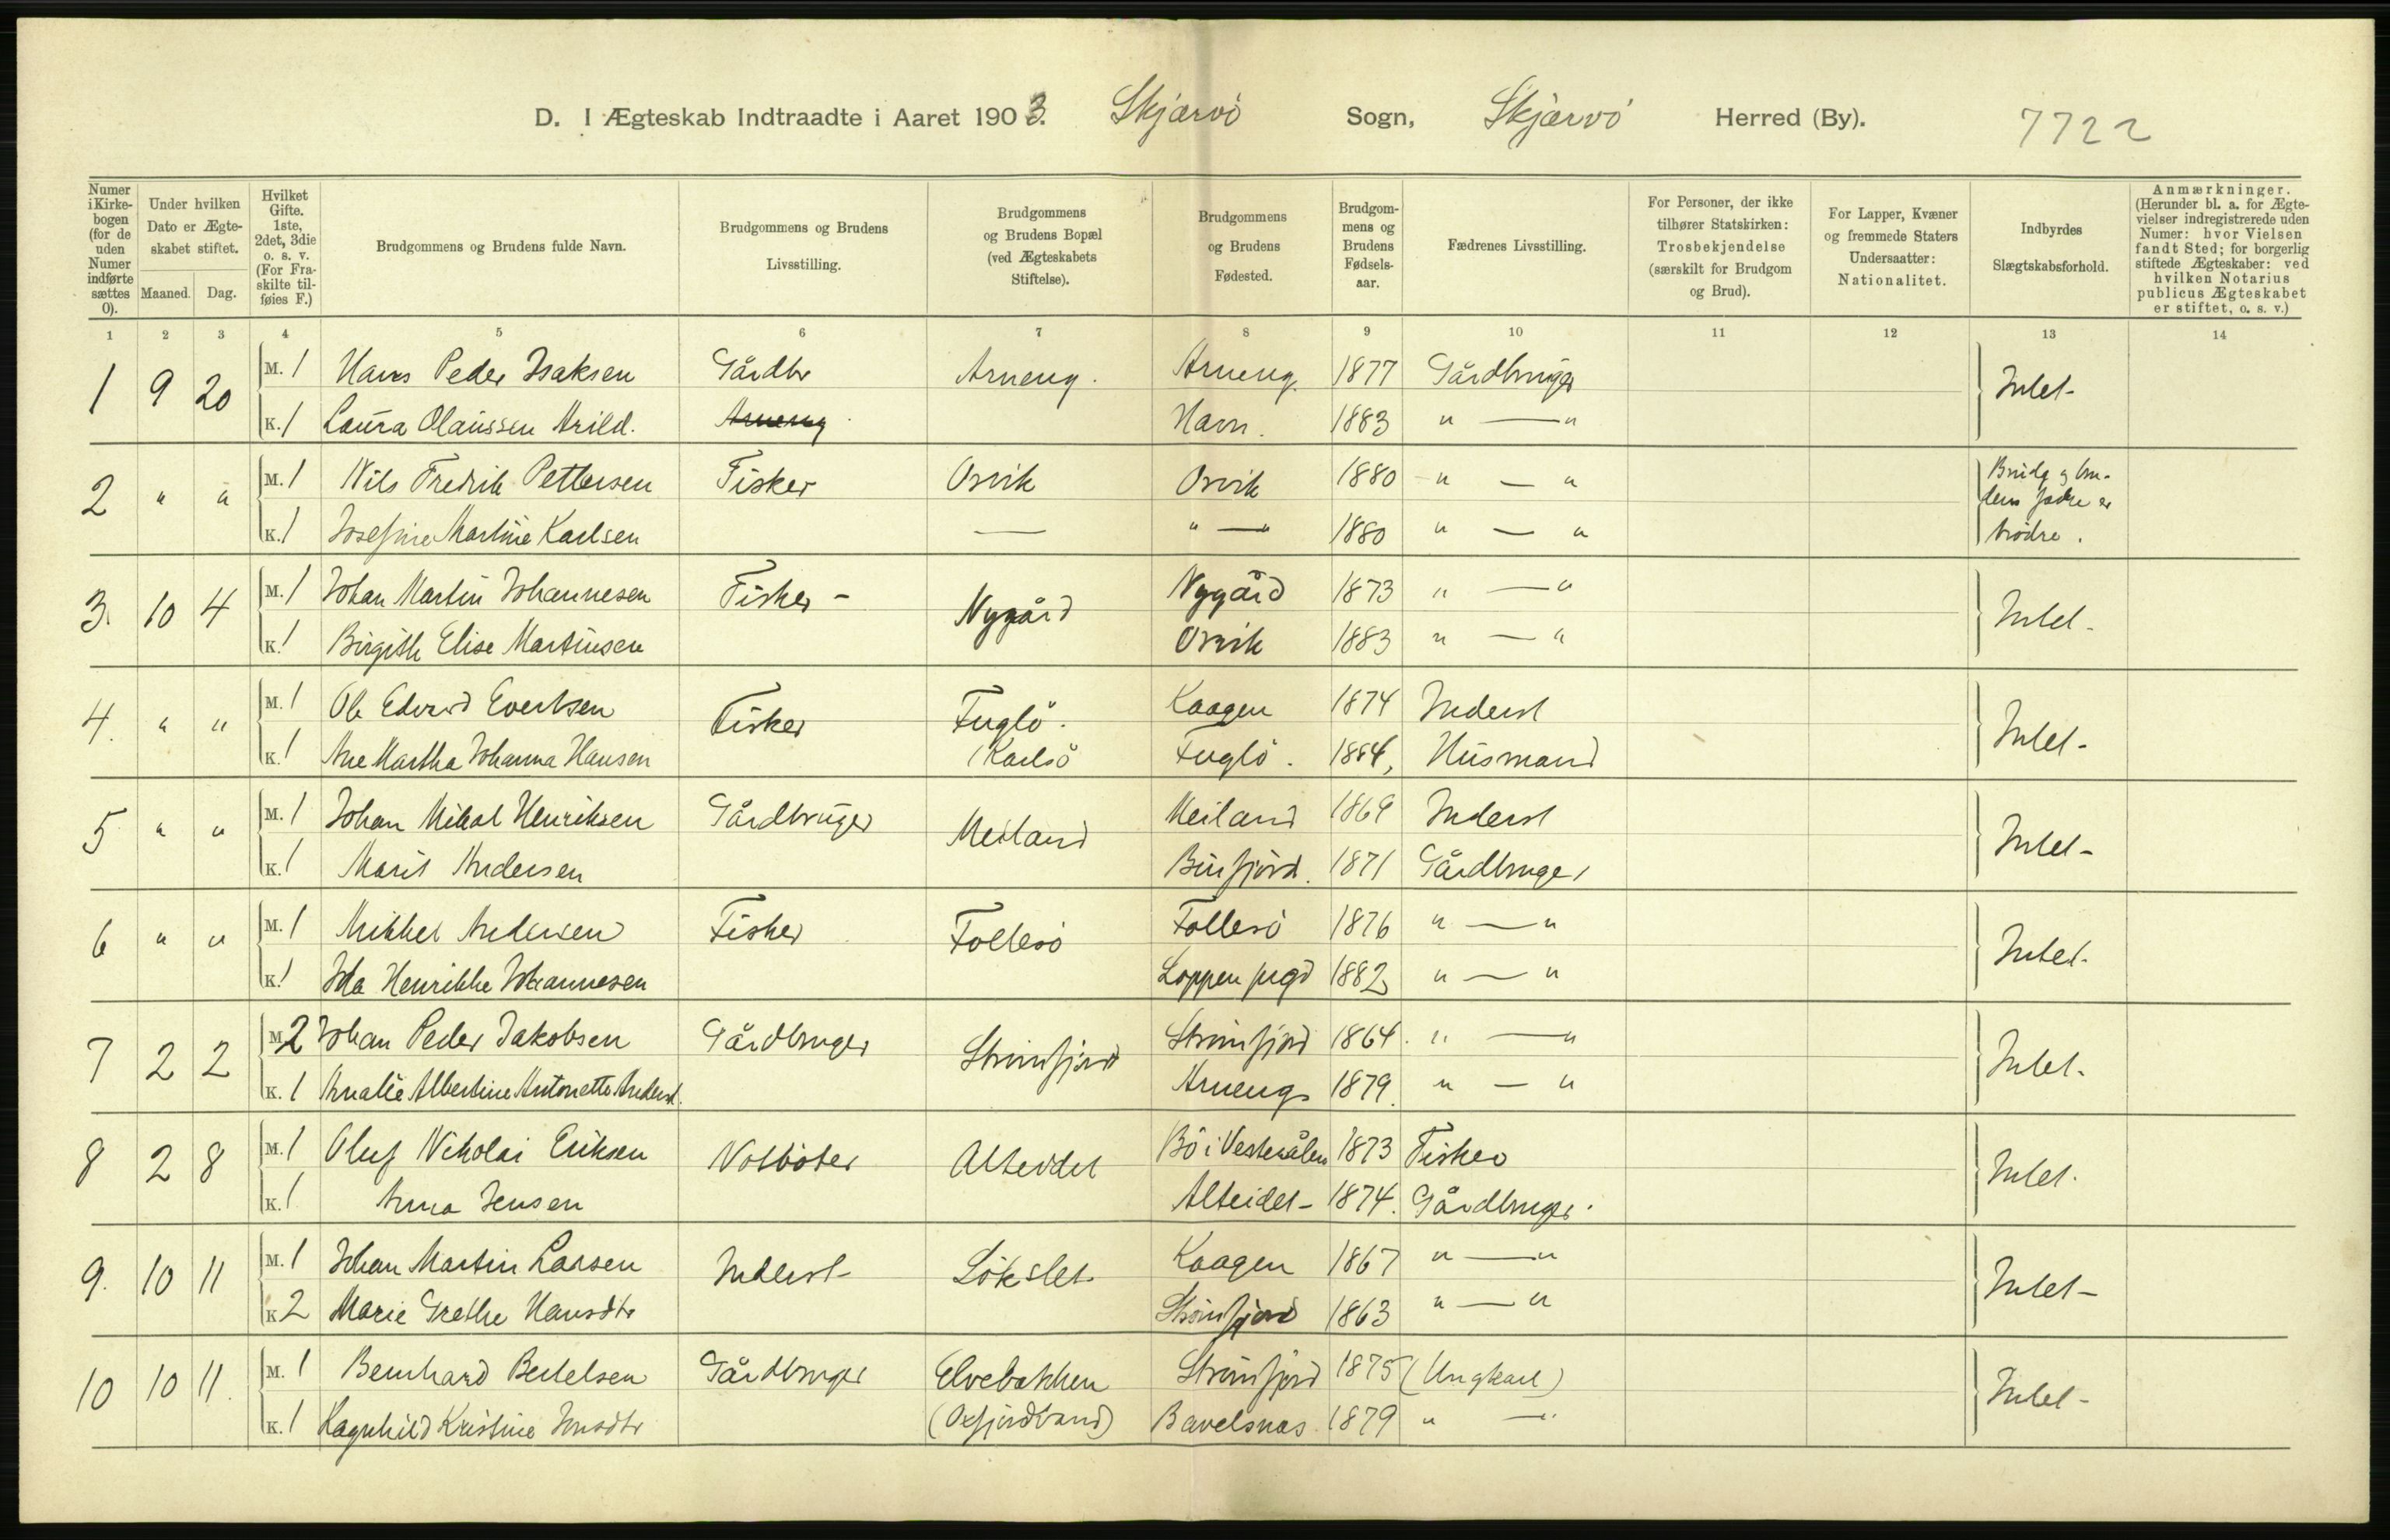 D. I Ægteskab Indtraadte i Aaret 1903. Skjærvö Sogn, Skjærvö Herred (By). 7722
Numer i Kirkebogen (for de uden Numer indførte sættes 0). Under hvilken Dato er Ægteskabet stiftet. Maaned. Dag. Hvilket Gifte. 1ste, 2det, 3die o. s. v. (For Fraskilte tilføies F.) Brudgommens og Brudens fulde Navn. Brudgommens og Brudens Livsstilling. Brudgommens og Brudens Bopæl (ved Ægteskabets Stiftelse). Brudgommens og Brudens Fødested. Brudgommens og Brudens Fødselsaar. Fædrenes Livsstilling. For Personer, der ikke tilhører Statskirken: Trosbekjendelse (særskilt for Brudgom og Brud). For Lapper, Kvæner og fremmede Staters Undersaatter: Nationalitet. Indbyrdes Slægtskabsforhold. Anmærkninger. (Herunder bl. a. for Ægtevielser indregistrerede uden Numer: hvor Vielsen fandt Sted; for borgerlig stiftede Ægteskaber: ved hvilken Notarius publicus Ægteskabet er stiftet, o. s. v.)
1 2 3 4 5 6 7 8 9 10 11 12 13 14
1 9 20 M. 1 Hans Peder Isaksen Gårdbr Arneng. Arneng. 1877 Gårdbruger Intet-
K. 1 Laura Olaussen Arild. Arneng Havn. 1883 " — "
2 " " M. 1 Nils Fredrik Pettersen Fisker Orvik Orvik 1880 " — " Brudg og bru-
dens fædre er
K. 1 Josefine Martine Karlsen — " — " 1880 " — " brödre.
3. 10 4 M. 1 Johan Martin Johannesen Fisker - Nygård Nygård 1873 " — " Intet-
K. 1 Birgith Elise Martinsen Orvik 1883 " — "
4. " " M. 1 Ole Edvard Evertsen Fisker Fuglö. Kaagen 1874 Inderst Intet-
K. 1 Ane Martha Johanna Hansen (Karlsö Fuglö. 1884, Husmand
5 " " M. 1 Johan Mikal Henriksen Gårdbruger Meiland Meiland 1869 Inderst Intet-
K. 1 Marit Andersen Burfjord. 1871 Gårdbruger
6 " " M. 1 Mikkel Andersen Fisker Follesö Follesö 1876 " — " Intet-
K. 1 Ida Henrikke Johannesen Loppen prgd 1882 " — "
7 2 2 M. 2 Johan Peder Jakobsen Gårdbruger Straumfjord Straumfjord 1864. " — " Intet-
K. 1 Amalie Albertine Antonette Anderst. Arneng 1879. " — "
8 2 8 M. 1 Oluf Nikolai Eriksen Notböter Alteidet Bö i Vesterålen 1873 Fisker Intet.
K. 1 Anna Jensen Alteidet- 1874. Gårdbruger.
9. 10 11 M. 1 Johan Martin Larsen Inderst- Lökslet- Kaagen 1867 " — " Intet-
K 2 Marie Grethe Hansdtr Straumfjord 1863 " — "
10 10 11. M. 1 Bernhard Bertelsen Gårdbruger Elvebakken Straumfjord 1875 (Ungkarl) Intet-
K. 1 Ragnhild Kristine Jonsdtr (Oxfjordvand) Bavelsnas 1879 " — "